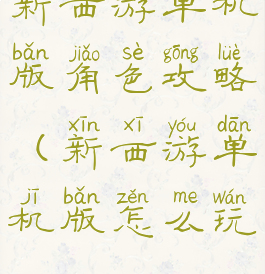 新西游单机
bǎn jiǎo sè gōng lüè
版角色攻略
xīn xī yóu dān
（新西游单
jī bǎn zěn me wán
机版怎么玩